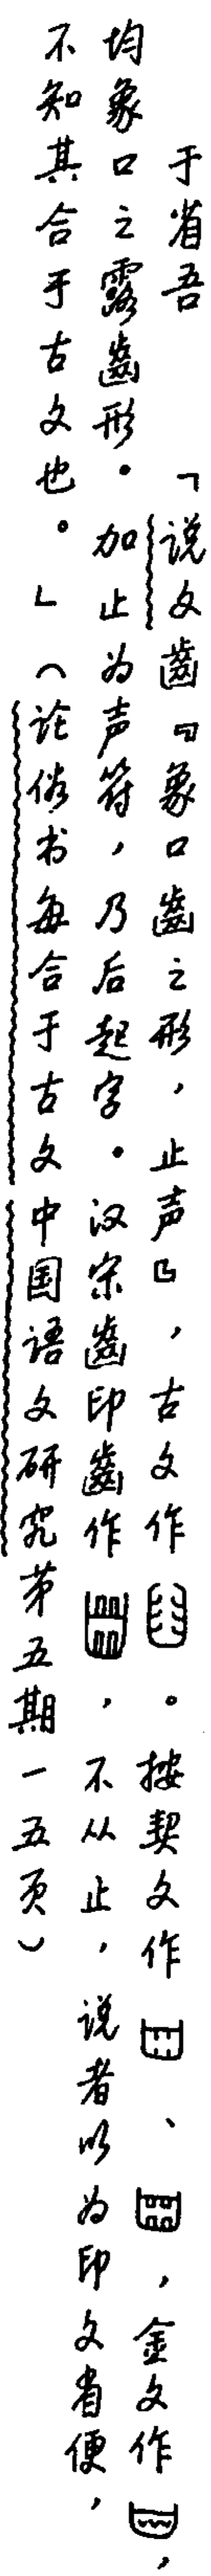 于省吾　「说文齒『象口齒之形，止声』，古文作。按契文作、，金文作，
均象口之露齒形。加止为声符，乃后起字。汉宋齒印齒作，不从止，说者以为印文省便，
不知其合于古文也。」（论俗书每合于古文 中国语文研究第五期一五页）